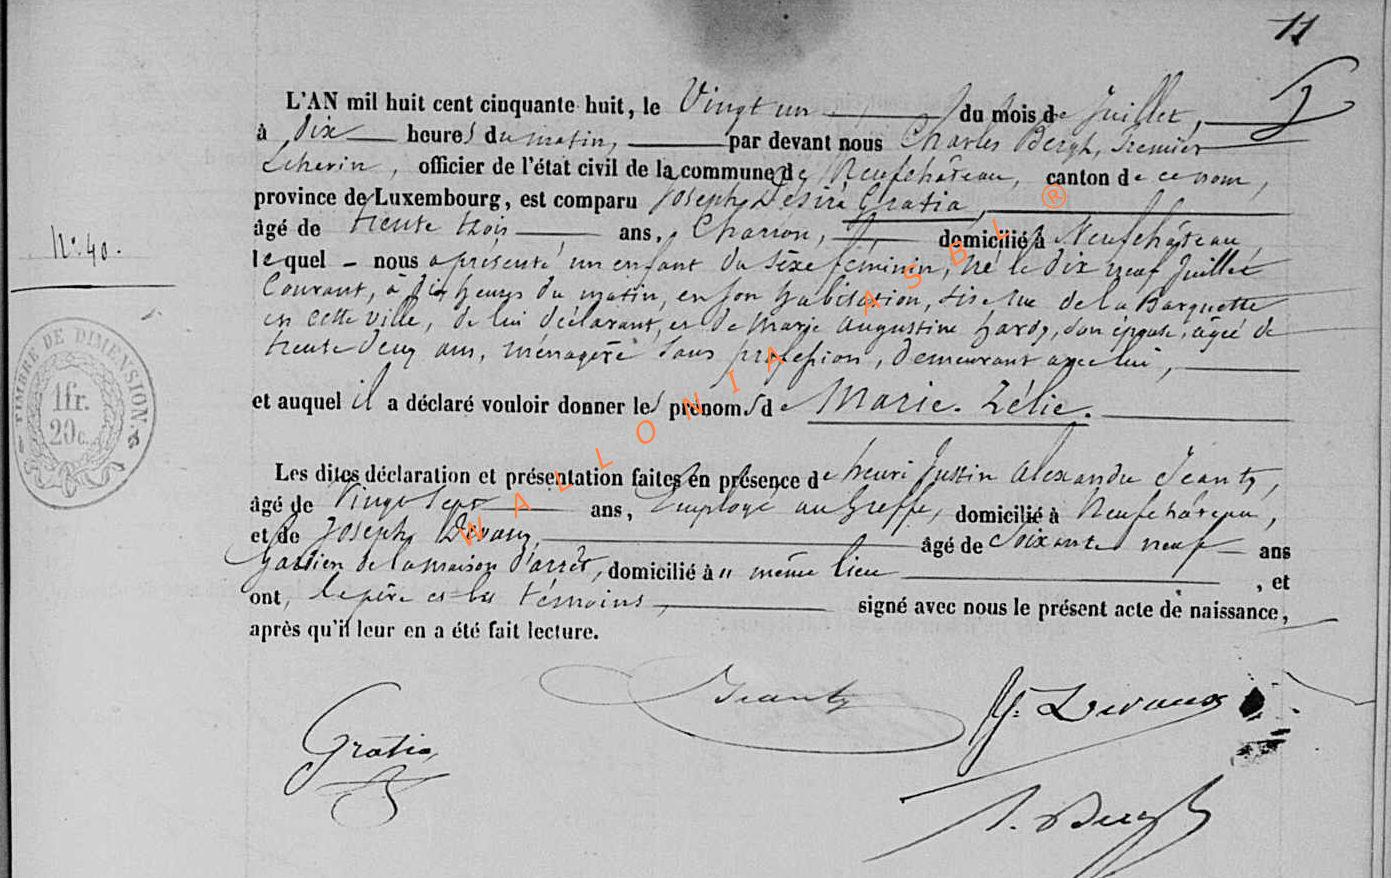 11
L'AN mil huit cent cinquante huit, le Vingt un du mois de Juillet,
à dix heures du matin, par devant nous Charles Bergh, Premier
Echevin, officier de l'état civil de la commune de Neufchâteau, canton de ce nom,
province de Luxembourg, est comparu Joseph Désiré Gratia,
âgé de trente trois ans, Charron, domicilié à Neufchâteau,
N° 40.
lequel nous a présenté un enfant du sexe féminin, né le dix neuf Juillet
Courant, à dix heures du matin, en son habitation, sise rue de la Barquette
en cette ville, de lui déclarant, et de Marie Augustine Hardy, son épouse, agée de
trente deux ans, ménagère sans profession, demeurant avec lui,
et auquel il a déclaré vouloir donner les prénoms de Marie. Zélie.
TIMBRE DE DIMENSION.
1fr.
20c.
Les dites déclaration et présentation faites en présence de henri Justin alexandre Jeanty,
âgé de Vingt Sept ans, Employé au Greffe, domicilié à Neufchâteau,
et de Joseph Devaux, âgé de Soixante neuf ans
Gardien de la maison d'arrêt, domicilié à " même lieu, et
ont, le père et les témoins, signé avec nous le présent acte de naissance,
après qu'il leur en a été fait lecture.
Jeanty
J. Devaux
Gratia
Bergh
WALLONIA ASBL ®